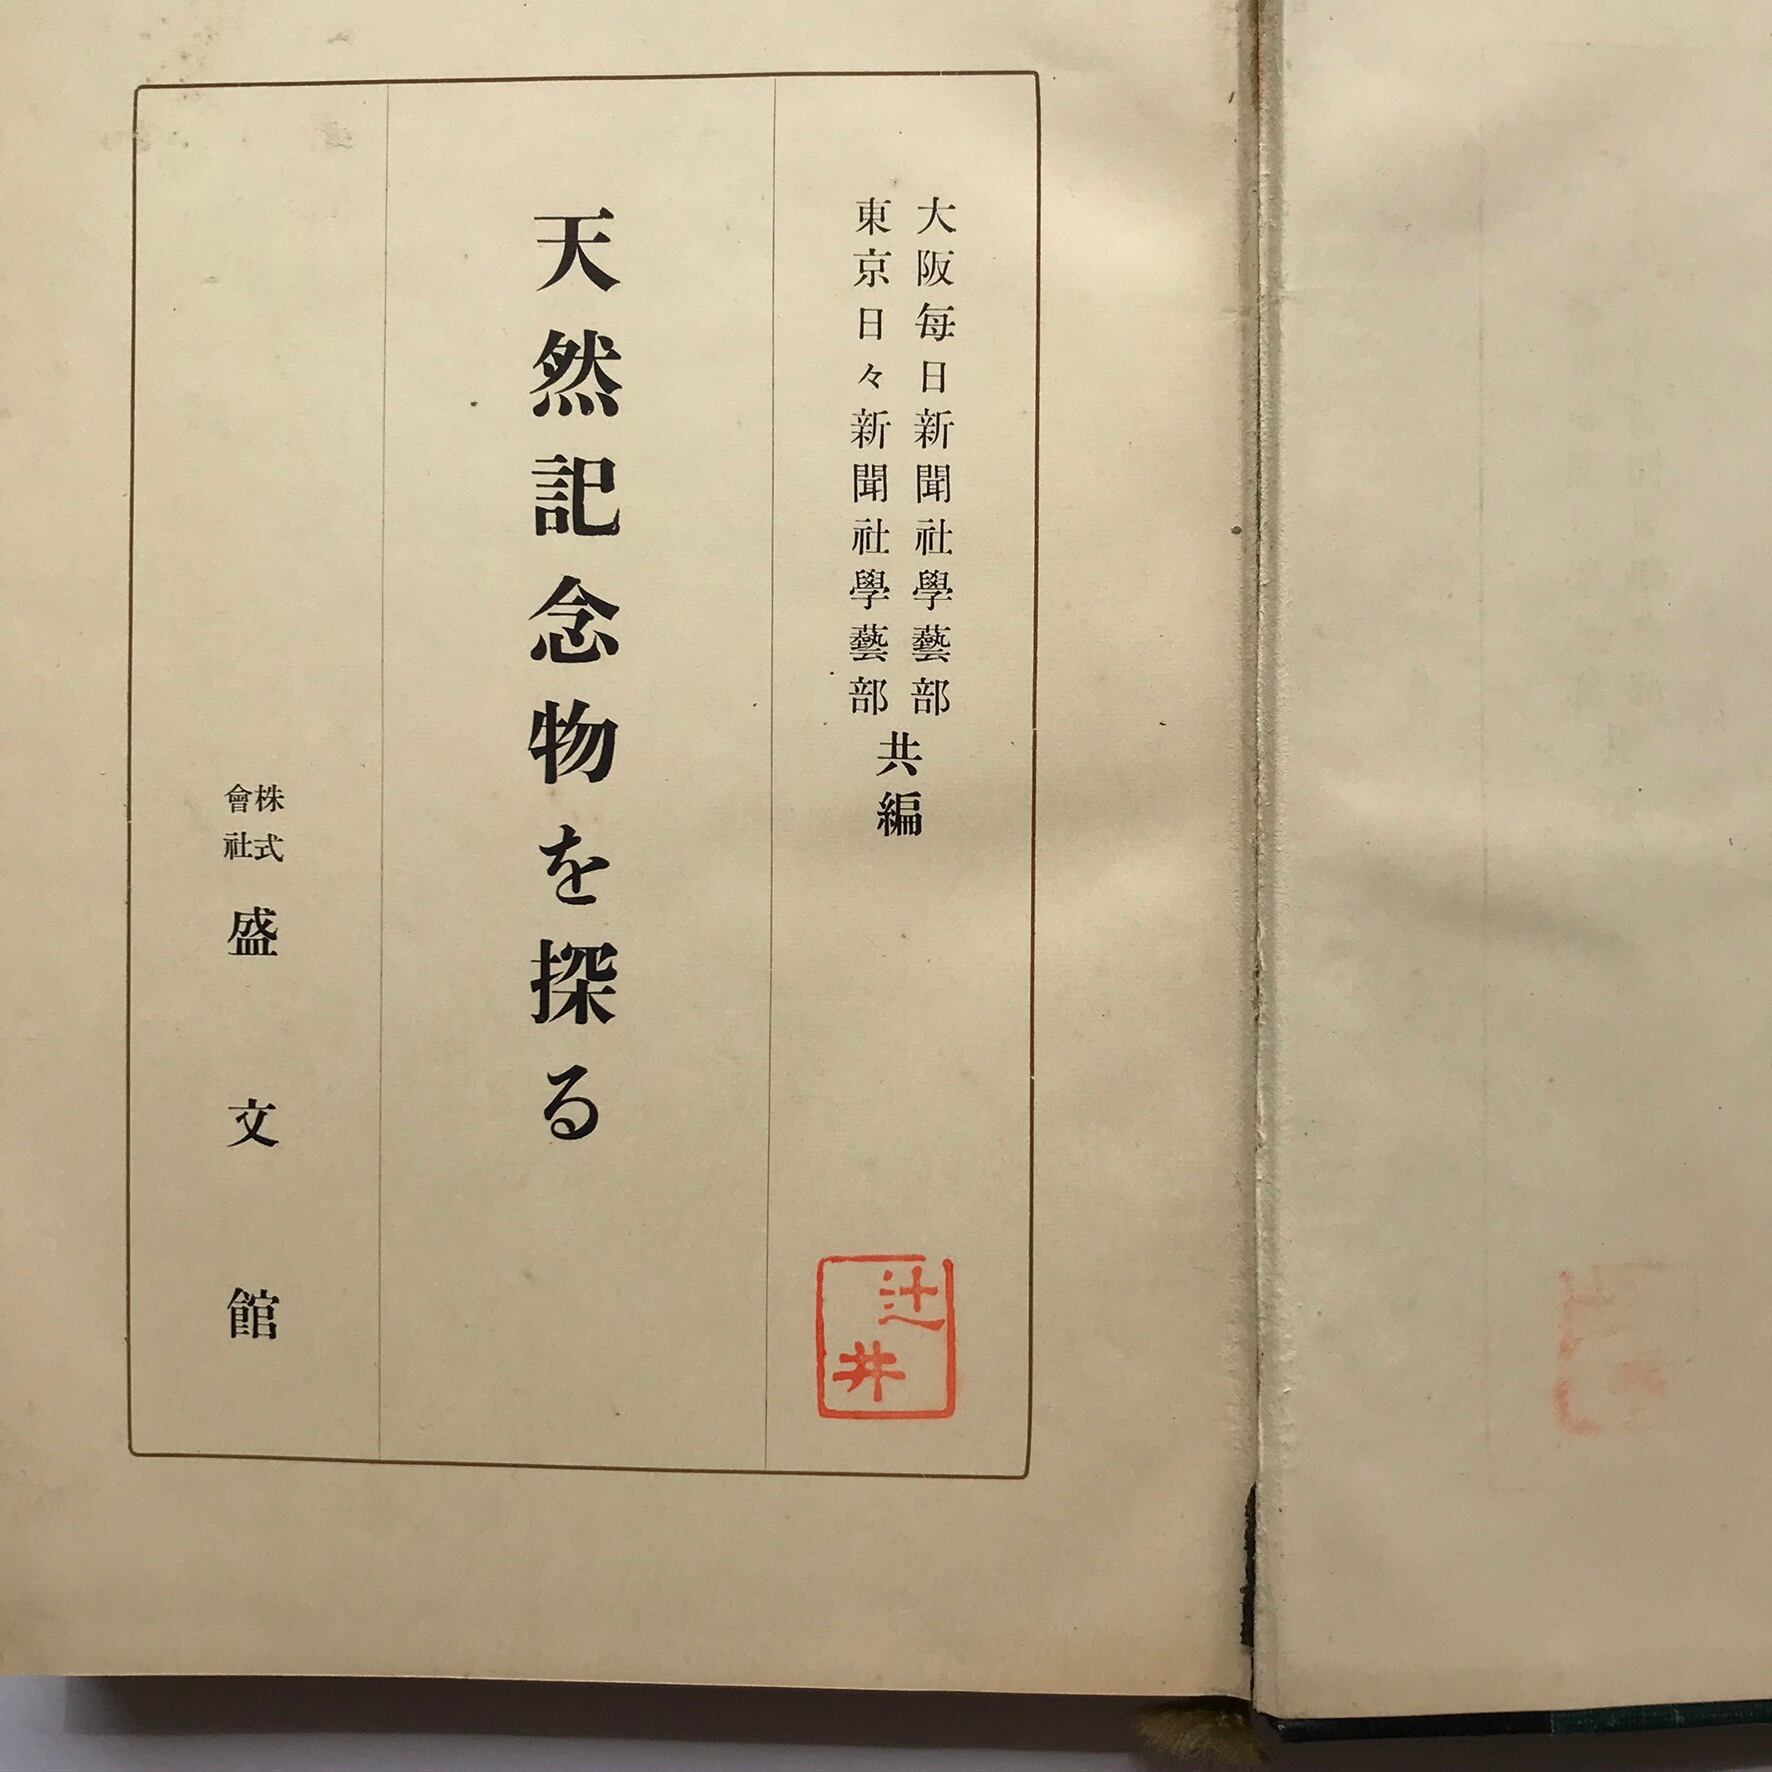 大阪每日新聞社學藝部
東京日々新聞社學藝部
共編
天然記念物を探る
株式
會社
盛文館
辻井